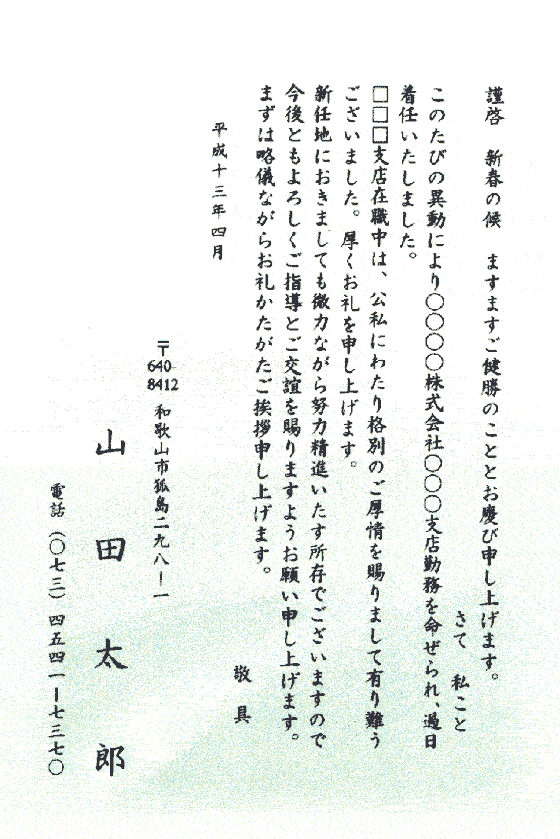 謹啓　新春の候　ますますご健勝のこととお慶び申し上げます。
さて　私こと
このたびの異動により〇〇〇〇株式会社〇〇〇支店勤務を命ぜられ、過日
着任いたしました。
□□□支店在職中は、公私にわたり格別のご厚情を賜りまして有り難う
ございました。厚くお礼を申し上げます。
新任地におきましても微力ながら努力精進いたす所存でございますので
今後ともよろしくご指導とご交誼を賜りますようお願い申し上げます。
まずは略儀ながらお礼かたがたご挨拶申し上げます。
敬具
平成十三年四月
〒640-8412　和歌山市狐島二九八ー一
山田太郎
電話（〇七三）四五四一ー七三七〇